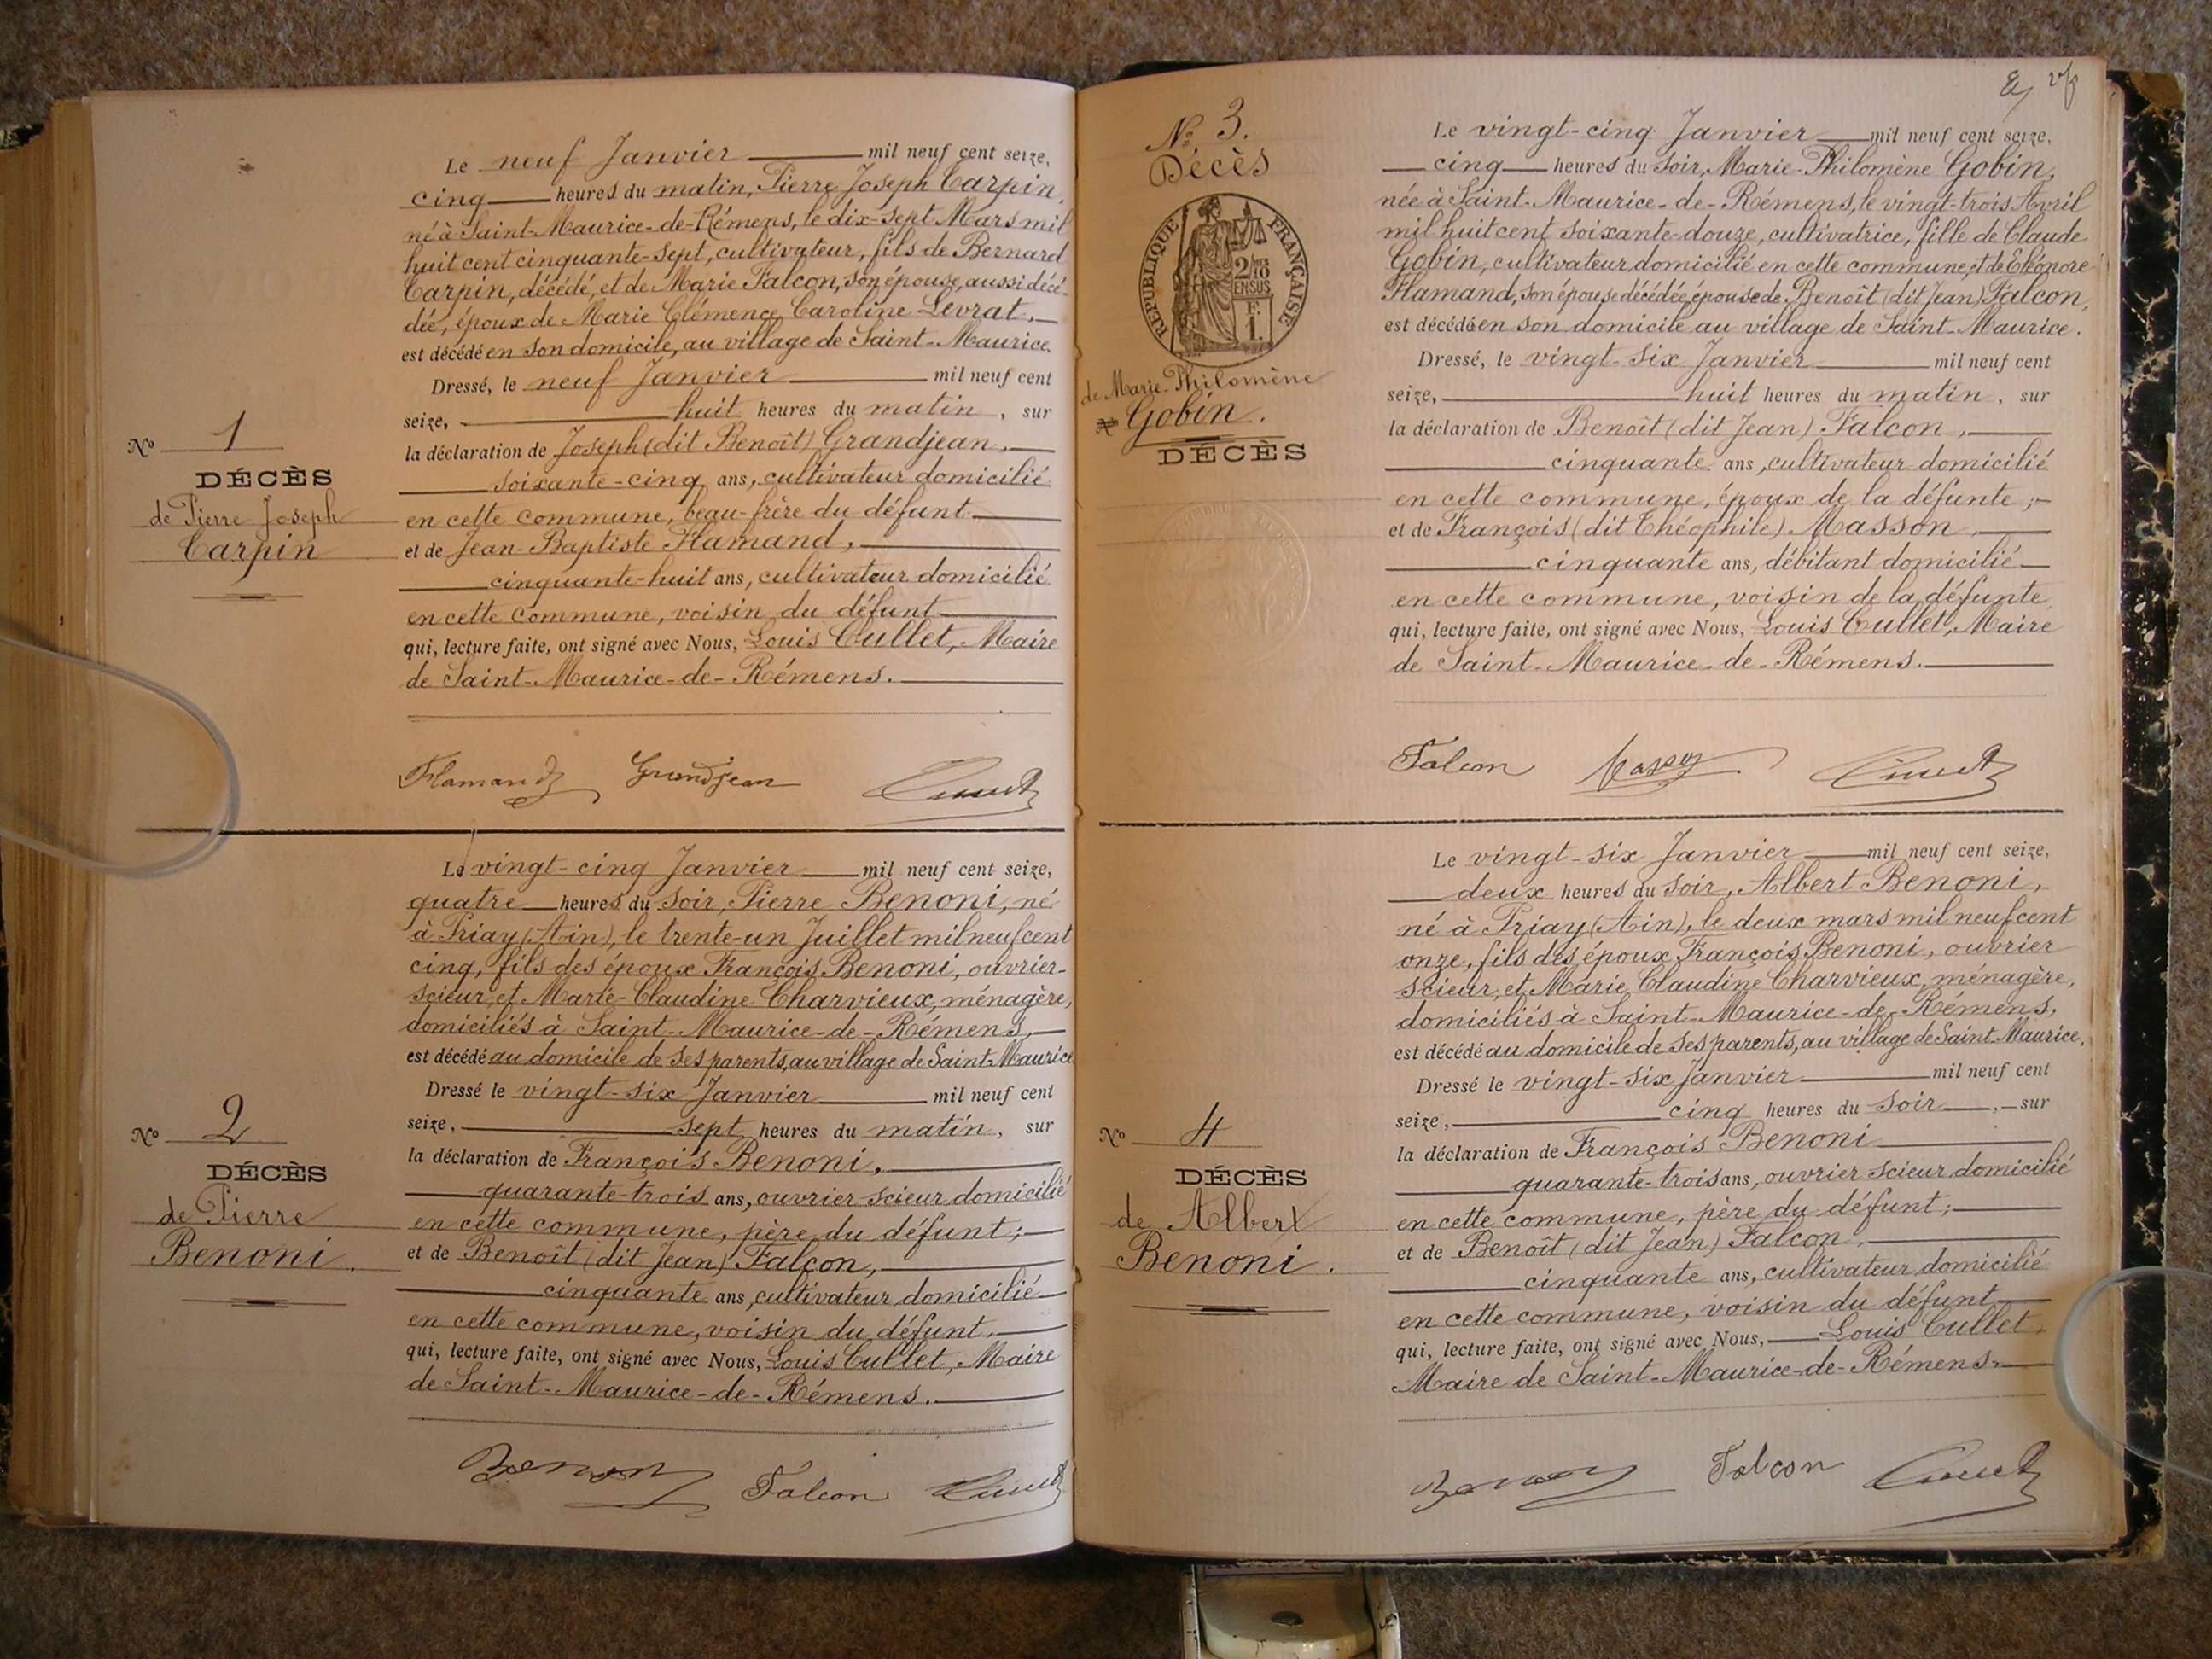 Le neuf Janvier mil neuf cent seize,
cinq heures du matin, Pierre Joseph Carpin,
né à Saint-Maurice-de-Rémens, le dix-sept Mars mil
huit cent cinquante-sept, cultivateur, fils de Bernard
Carpin, décédé, et de Marie Falcon, son épouse, aussi décé-
dée, époux de Marie Clémence Caroline Levrat,
est décédé en son domicile, au village de Saint-Maurice.
Dressé, le neuf Janvier mil neuf cent
seize, huit heures du matin, sur
la déclaration de Joseph (dit Benoît) Grandjean,
soixante-cinq ans, cultivateur domicilié
en cette commune, beau-frère du défunt
et de Jean-Baptiste Flamand,
cinquante-huit ans, cultivateur domicilié
en cette commune, voisin du défunt
qui, lecture faite, ont signé avec Nous, Louis Cullet, Maire
de Saint-Maurice-de-Rémens.
No 1
DÉCÈS
de Pierre Joseph
Carpin
Flamand Grandjean Cullet
Le vingt-cinq Janvier mil neuf cent seize,
quatre heures du soir, Pierre Benoni, né
à Priay (Ain), le trente-un Juillet mil neuf cent
cinq, fils des époux François Benoni, ouvrier-
scieur, et Marie-Claudine Charvieux, ménagère,
domiciliés à Saint-Maurice-de-Rémens,
est décédé au domicile de ses parents, au village de Saint-Maurice
Dressé le vingt-six Janvier mil neuf cent
seize, sept heures du matin, sur
la déclaration de François Benoni,
quarante-trois ans, ouvrier scieur domicilié
en cette commune, père du défunt;
et de Benoît (dit Jean) Falcon,
cinquante ans, cultivateur domicilié
en cette commune, voisin du défunt,
qui, lecture faite, ont signé avec Nous, Louis Cullet, Maire
de Saint-Maurice-de-Rémens.
No 2
DÉCÈS
de Pierre
Benoni.
Benoni Falcon Cullet
No 3.
Décès
RÉPUBLIQUE FRANÇAISE
2/10
EN SUS
F.
1.
de Marie-Philomène
Gobin.
DÉCÈS
Le vingt-cinq Janvier mil neuf cent seize,
cinq heures du soir, Marie-Philomène Gobin,
née à Saint-Maurice-de-Rémens, le vingt-trois Avril
mil huit cent soixante-douze, cultivatrice, fille de Claude
Gobin, cultivateur domicilié en cette commune, et de Eléonore
Flamand, son épouse décédée, épouse de Benoît (dit Jean) Falcon,
est décédée en son domicile au village de Saint-Maurice.
Dressé, le vingt-six Janvier mil neuf cent
seize, huit heures du matin, sur
la déclaration de Benoît (dit Jean) Falcon,
cinquante ans, cultivateur domicilié
en cette commune, époux de la défunte;
et de François (dit Théophile) Masson,
cinquante ans, débitant domicilié
en cette commune, voisin de la défunte
qui, lecture faite, ont signé avec Nous, Louis Cullet, Maire
de Saint-Maurice-de-Rémens.
Falcon Masson Cullet
Le vingt-six Janvier mil neuf cent seize,
deux heures du soir, Albert Benoni,
né à Priay (Ain), le deux mars mil neuf cent
onze, fils des époux François Benoni, ouvrier
scieur, et Marie Claudine Charvieux, ménagère,
domiciliés à Saint-Maurice-de-Rémens,
est décédé au domicile de ses parents, au village de Saint Maurice.
Dressé le vingt-six Janvier mil neuf cent
seize, cinq heures du soir, sur
la déclaration de François Benoni
quarante-trois ans, ouvrier scieur domicilié
en cette commune, père du défunt;
et de Benoît (dit Jean) Falcon,
cinquante ans, cultivateur domicilié
en cette commune, voisin du défunt
qui, lecture faite, ont signé avec Nous, Louis Cullet,
Maire de Saint-Maurice-de-Rémens.
No 4
DÉCÈS
de Albert
Benoni.
Benoni Falcon Cullet